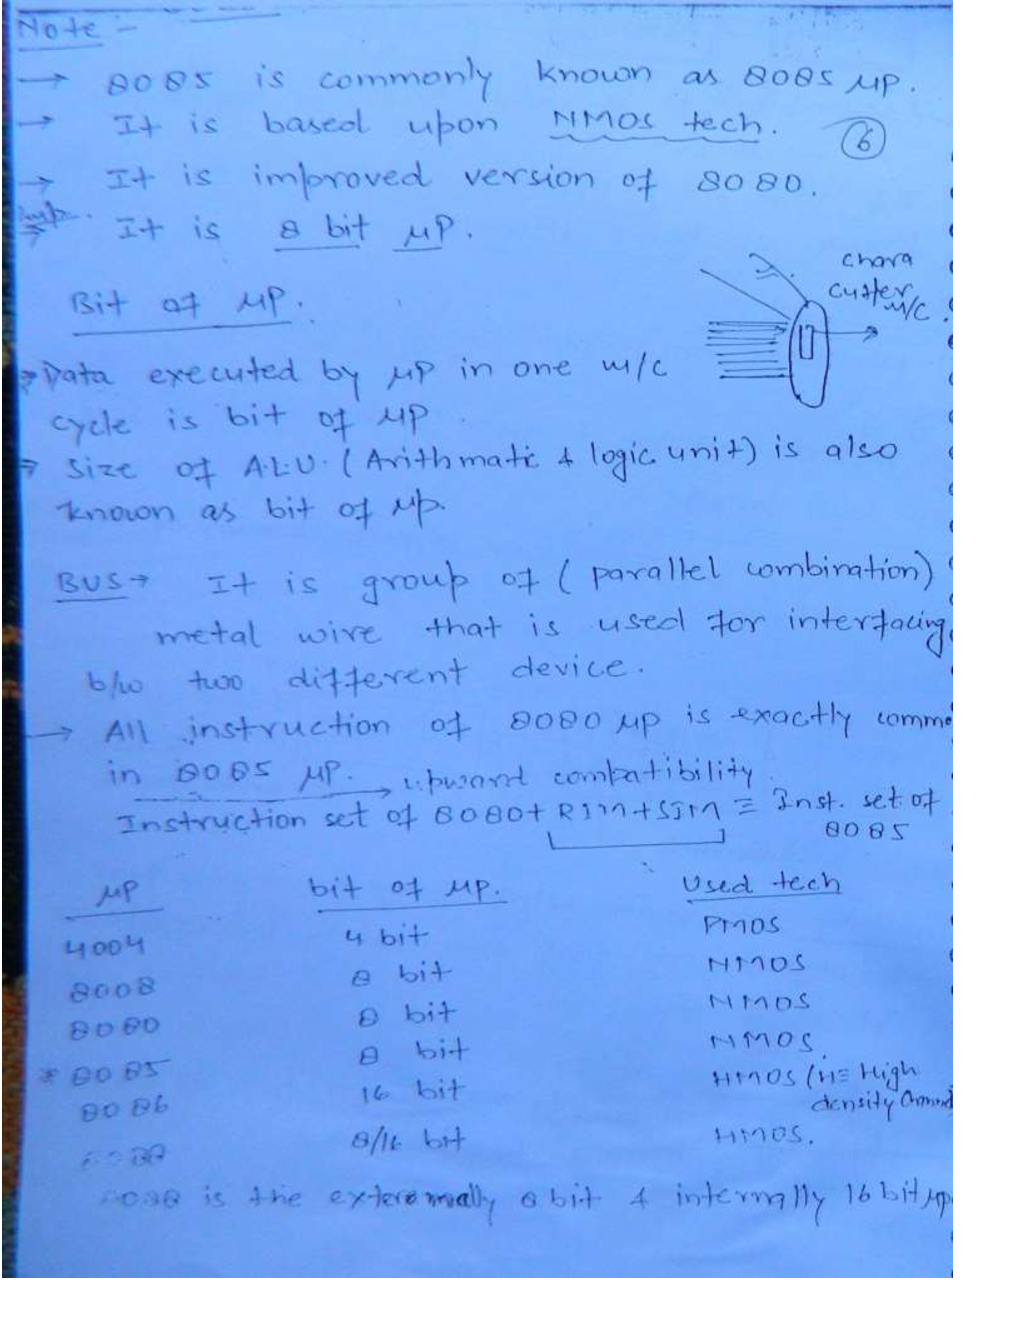 Note -
→ 8085 is commonly known as 8085 μp.
→ It is based upon NMOS tech.
6
→ It is improved version of 8080.
Imp.
⇒ It is 8 bit μP.
chara
cutter
M/C.
Bit of μP.
⇒ Data executed by μP in one m/c
cycle is bit of μP.
⇒ Size of A.L.U. (Arithmatic & logic unit) is also
known as bit of μp.
BUS → It is group of (parallel combination)
metal wire that is used for interfacing
b/w two different device.
→ All instruction of 8080 μp is exactly comm
in 8085 μP. → upward compatibility.
Instruction set of 8080+ RIM+SIM ≡ Inst. set of
8085
μP bit of μP. Used tech
4004 4 bit PMOS
8008 8 bit NMOS
8080 8 bit NMOS
* 8085 8 bit NMOS.
8086 16 bit HMOS (H≡ High
density
8088 8/16 bit HMOS.
8088 is the exteremally 8 bit & internally 16 bit μp